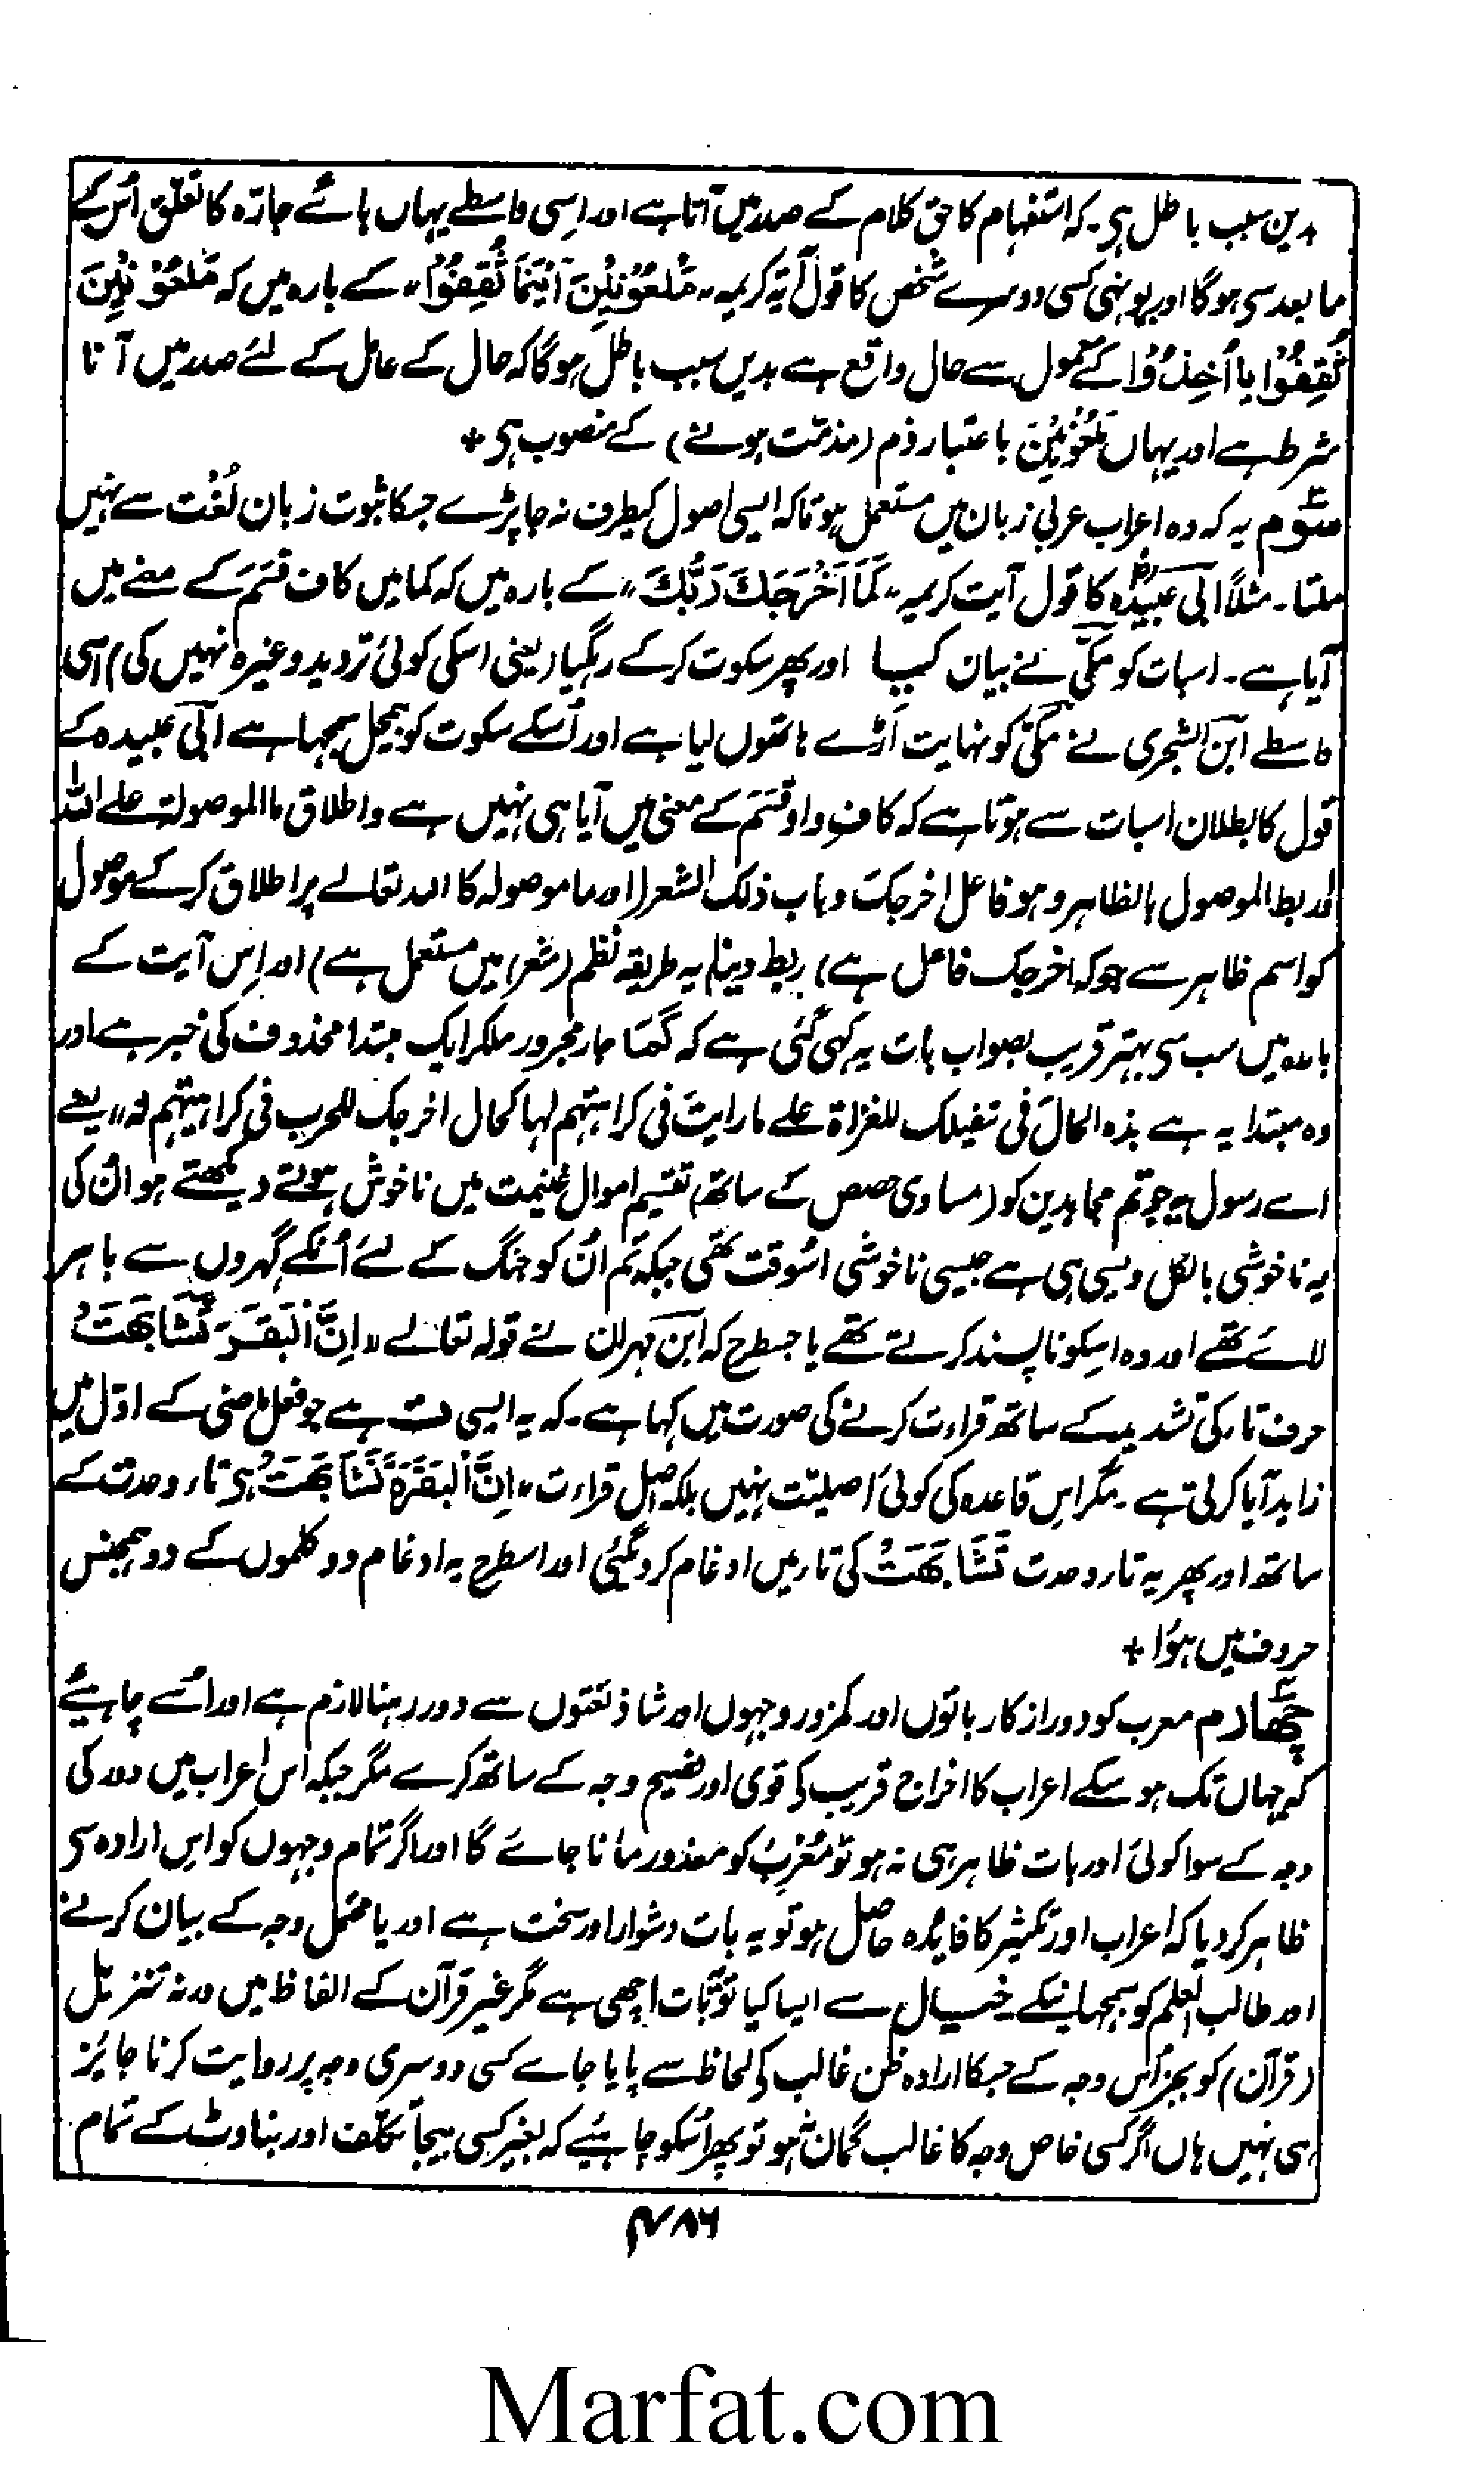 بدین سبب باطل ہی۔ کہ استفہام کا حق کلام کے صدر میں آتا ہے اور اِسی واسطے یہاں بائے جارّہ کا تعلق اُس کے
ما بعد سی ہوگا اور یونہی کسی دوسرے شخص کا قول آیۃ کریمہ "مَلْعُوْنِیْنَ اَیْنَمَا ثُقِفُوْا" کے بارہ میں کہ مَلْعُوْنِیْنَ
ثُقِفُوْا یا اُخِذُوْا کے معمول سے حال واقع ہے بدیں سبب باطل ہوگا کہ حال کے عامل کے لئے صدر میں آنا
شرط ہے اور یہاں مَلْعُوْنِیْنَ باعتبار ذم (مذمّت ہونے) کے منصوب ہی +
سوّم یہ کہ وہ اعراب عربی زبان میں مستعمل ہو تاکہ ایسی اصول کیطرف نہ جا پڑے جسکا ثبوت زبان لُغت سے نہیں
ملتا۔ مثلاً ابی عبیدہ کا قول آیت کریمہ "کَمَا اَخْرَجَكَ رَبُّكَ" کے بارہ میں کہ کما میں کاف قَسَمَ کے معنے میں
آیا ہے۔ اسبات کو مکّی نے بیان کیا اور پھر سکوت کرکے رہگیا (یعنی اسکی کوئی تردید وغیرہ نہیں کی) اسی
واسطے ابن الشجری نے مکّی کو نہایت آڑے ہاتھوں لیا ہے اور اُسکے سکوت کو بیجل سمجہا ہے ابی عبیدہ کے
قول کا بطلان اسبات سے ہوتا ہے کہ کاف واو قَسَمَ کے معنی میں آیا ہی نہیں ہے و اطلاق ما الموصولۃ علے اللہ
و ربط الموصول بالظاہر و ہو فاعل اخرجک و باب ذلک الشعر (اور ما موصولہ کا اللہ تعالے پر اطلاق کرکے موصول
کو اسم ظاہر سے جو کہ اخرجک فاعل ہے) ربط دینا یہ طریقہ نظم (شعر) میں مستعمل ہے) اور اِس آیت کے
بارہ میں سب سی بہتر قریب بصواب بات یہ کہی گئی ہے کہ کَمَا جار مجرور ملکر ایک مبتدا محذوف کی خبر ہے اور
وہ مبتدا یہ ہے ہذہ الحالَ فی تنفیلک للغزاۃ علے ما رایتَ فی کراہتہم لہا کحال اخرجک للحرب فی کراہیتہم لہ" یعنے
اے رسول یہ جو تم مجاہدین کو (مساوی حصص کے ساتھ) تقسیم اموال غنیمت میں ناخوش ہوتے دیکھتے ہو اُن کی
یہ ناخوشی بالکل ویسی ہی ہے جیسی ناخوشی اسُوقت تھی جبکہ تم اُن کو جنگ کے لئے اُنکے گہروں سے باہر
لائے تھے اور وہ اسکو ناپسند کرتے تھے یا جسطرح کہ ابن مہران نے قولہ تعالے "اِنَّ الْبَقَرَ تَّشَابَهَتْ
حرف تا کی تشدید کے ساتھ قراءت کرنے کی صورت میں کہا ہے۔ کہ یہ ایسی ت ہے جو فعل ماضی کے اوّل میں
زاید آیا کرتی ہے۔ مگر اس قاعدہ کی کوئی اَصلیّت نہیں بلکہ اصل قراءت "اِنَّ الْبَقَرَةَ تَّشَابَهَتْ ہی تاء وحدت کے
ساتھ اور پھر یہ تاء وحدت تَشَابَهَتْ کی تا میں ادغام کردیگئی اور اسطرح یہ ادغام دو کلموں کے دو ہمجنس
حروف میں ہوُا +
چھارم معرب کو دوراز کار باتوں اور کمزور وجہوں اور شاذ لغتوں سے دور رہنا لازم ہے اور اُسے چاہیئے
کہ جہاں تک ہو سکے اعراب کا اخراج قریب کی قوی اور فصیح وجہ کے ساتھ کرے مگر جبکہ اس اعراب میں دور کی
وجہ کے سوا کوئی اور بات ظاہر ہی نہ ہو تو مُعْرِبُ کو معذور مانا جائے گا اور اگر تمام وجہوں کو اِس ارادہ سی
ظاہر کردیا کہ اعراب اور تکثیر کا فایدہ حاصل ہو تو یہ بات دشوار اور سخت ہے اور یا محتمل وجہ کے بیان کرنے
اور طالب العلم کو سمجہانیکے خیال سے ایسا کیا تو یہ بات اچھی ہے مگر غیر قرآن کے الفاظ میں ورنہ تنزیل
(قرآن) کو بجز اُس وجہ کے جسکا ارادہ ظن غالب کی لحاظ سے پایا جاے کسی دوسری وجہ پر روایت کرنا جایٔز
ہی نہیں ہاں اگر کسی خاص وجہ کا غالب گمان نہ ہو تو پھر اُسکو چاہئیے کہ بغیر کسی بیجا تکلّف اور بناوٹ کے تمام
۴۷۸۶
Marfat.com